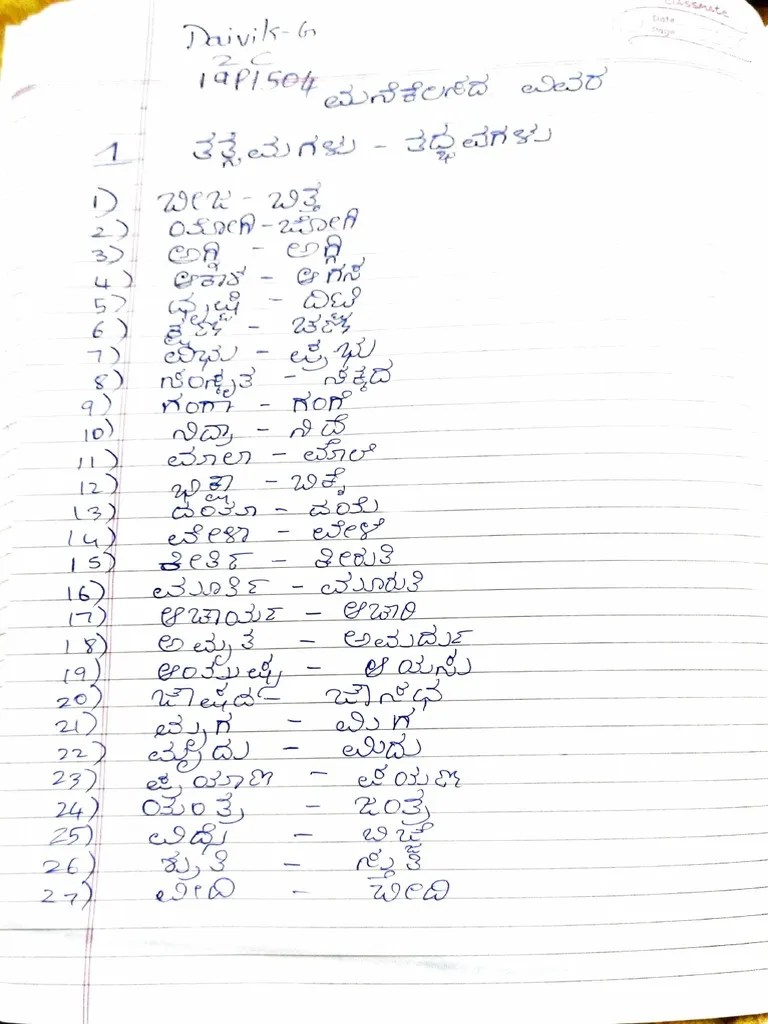 classmate
Date
Page
Daivik-G
2 C
19P1504
ಮನೆಕೆಲಸದ ವಿವರ
1 ತತ್ಸಮಗಳು - ತದ್ಭವಗಳು
1) ಬೀಜ - ಬಿತ್ತ
2) ಯೋಗಿ - ಜೋಗಿ
3) ಅಗ್ನಿ - ಅಗ್ಗಿ
4) ಆಕಾಶ - ಆಗಸ
5) ದೃಷ್ಟಿ - ದಿಟಿ
6) ಕ್ಷಣ - ಚಣ
7) ವಿಭು - ಪ್ರಭು
8) ಸಂಸ್ಕೃತ - ಸಕ್ಕದ
9) ಗಂಗಾ - ಗಂಗೆ
10) ನಿದ್ರಾ - ನಿದೆ
11) ಮಾಲಾ - ಮಾಲೆ
12) ಭಿಕ್ಷಾ - ಬಿಕ್ಕೆ
13) ದಂತೂ - ದಂತು
14) ವೇಳಾ - ವೇಳೆ
15) ಕೀರ್ತಿ - ಕೀರುತಿ
16) ಮೂರ್ತಿ - ಮೂರುತಿ
17) ಆಚಾರ್ಯ - ಆಚಾರಿ
18) ಅಮೃತ - ಅಮರ್ದು
19) - ಆಯಸು
20) ಔಷಧ - ಔಸಧ
21) ಮೃಗ - ಮಿಗ
22) ಮೃದು - ಮಿದು
23) ಪ್ರಯಾಣ - ಪಯಣ
24) ಯಂತ್ರ - ಜಂತ್ರ
25) ವಿದ್ಯೆ - ಬಿಜ್ಜೆ
26) ಶ್ರುತಿ - ಸ್ತುತಿ
27) ವೀದಿ - ಬೀದಿ